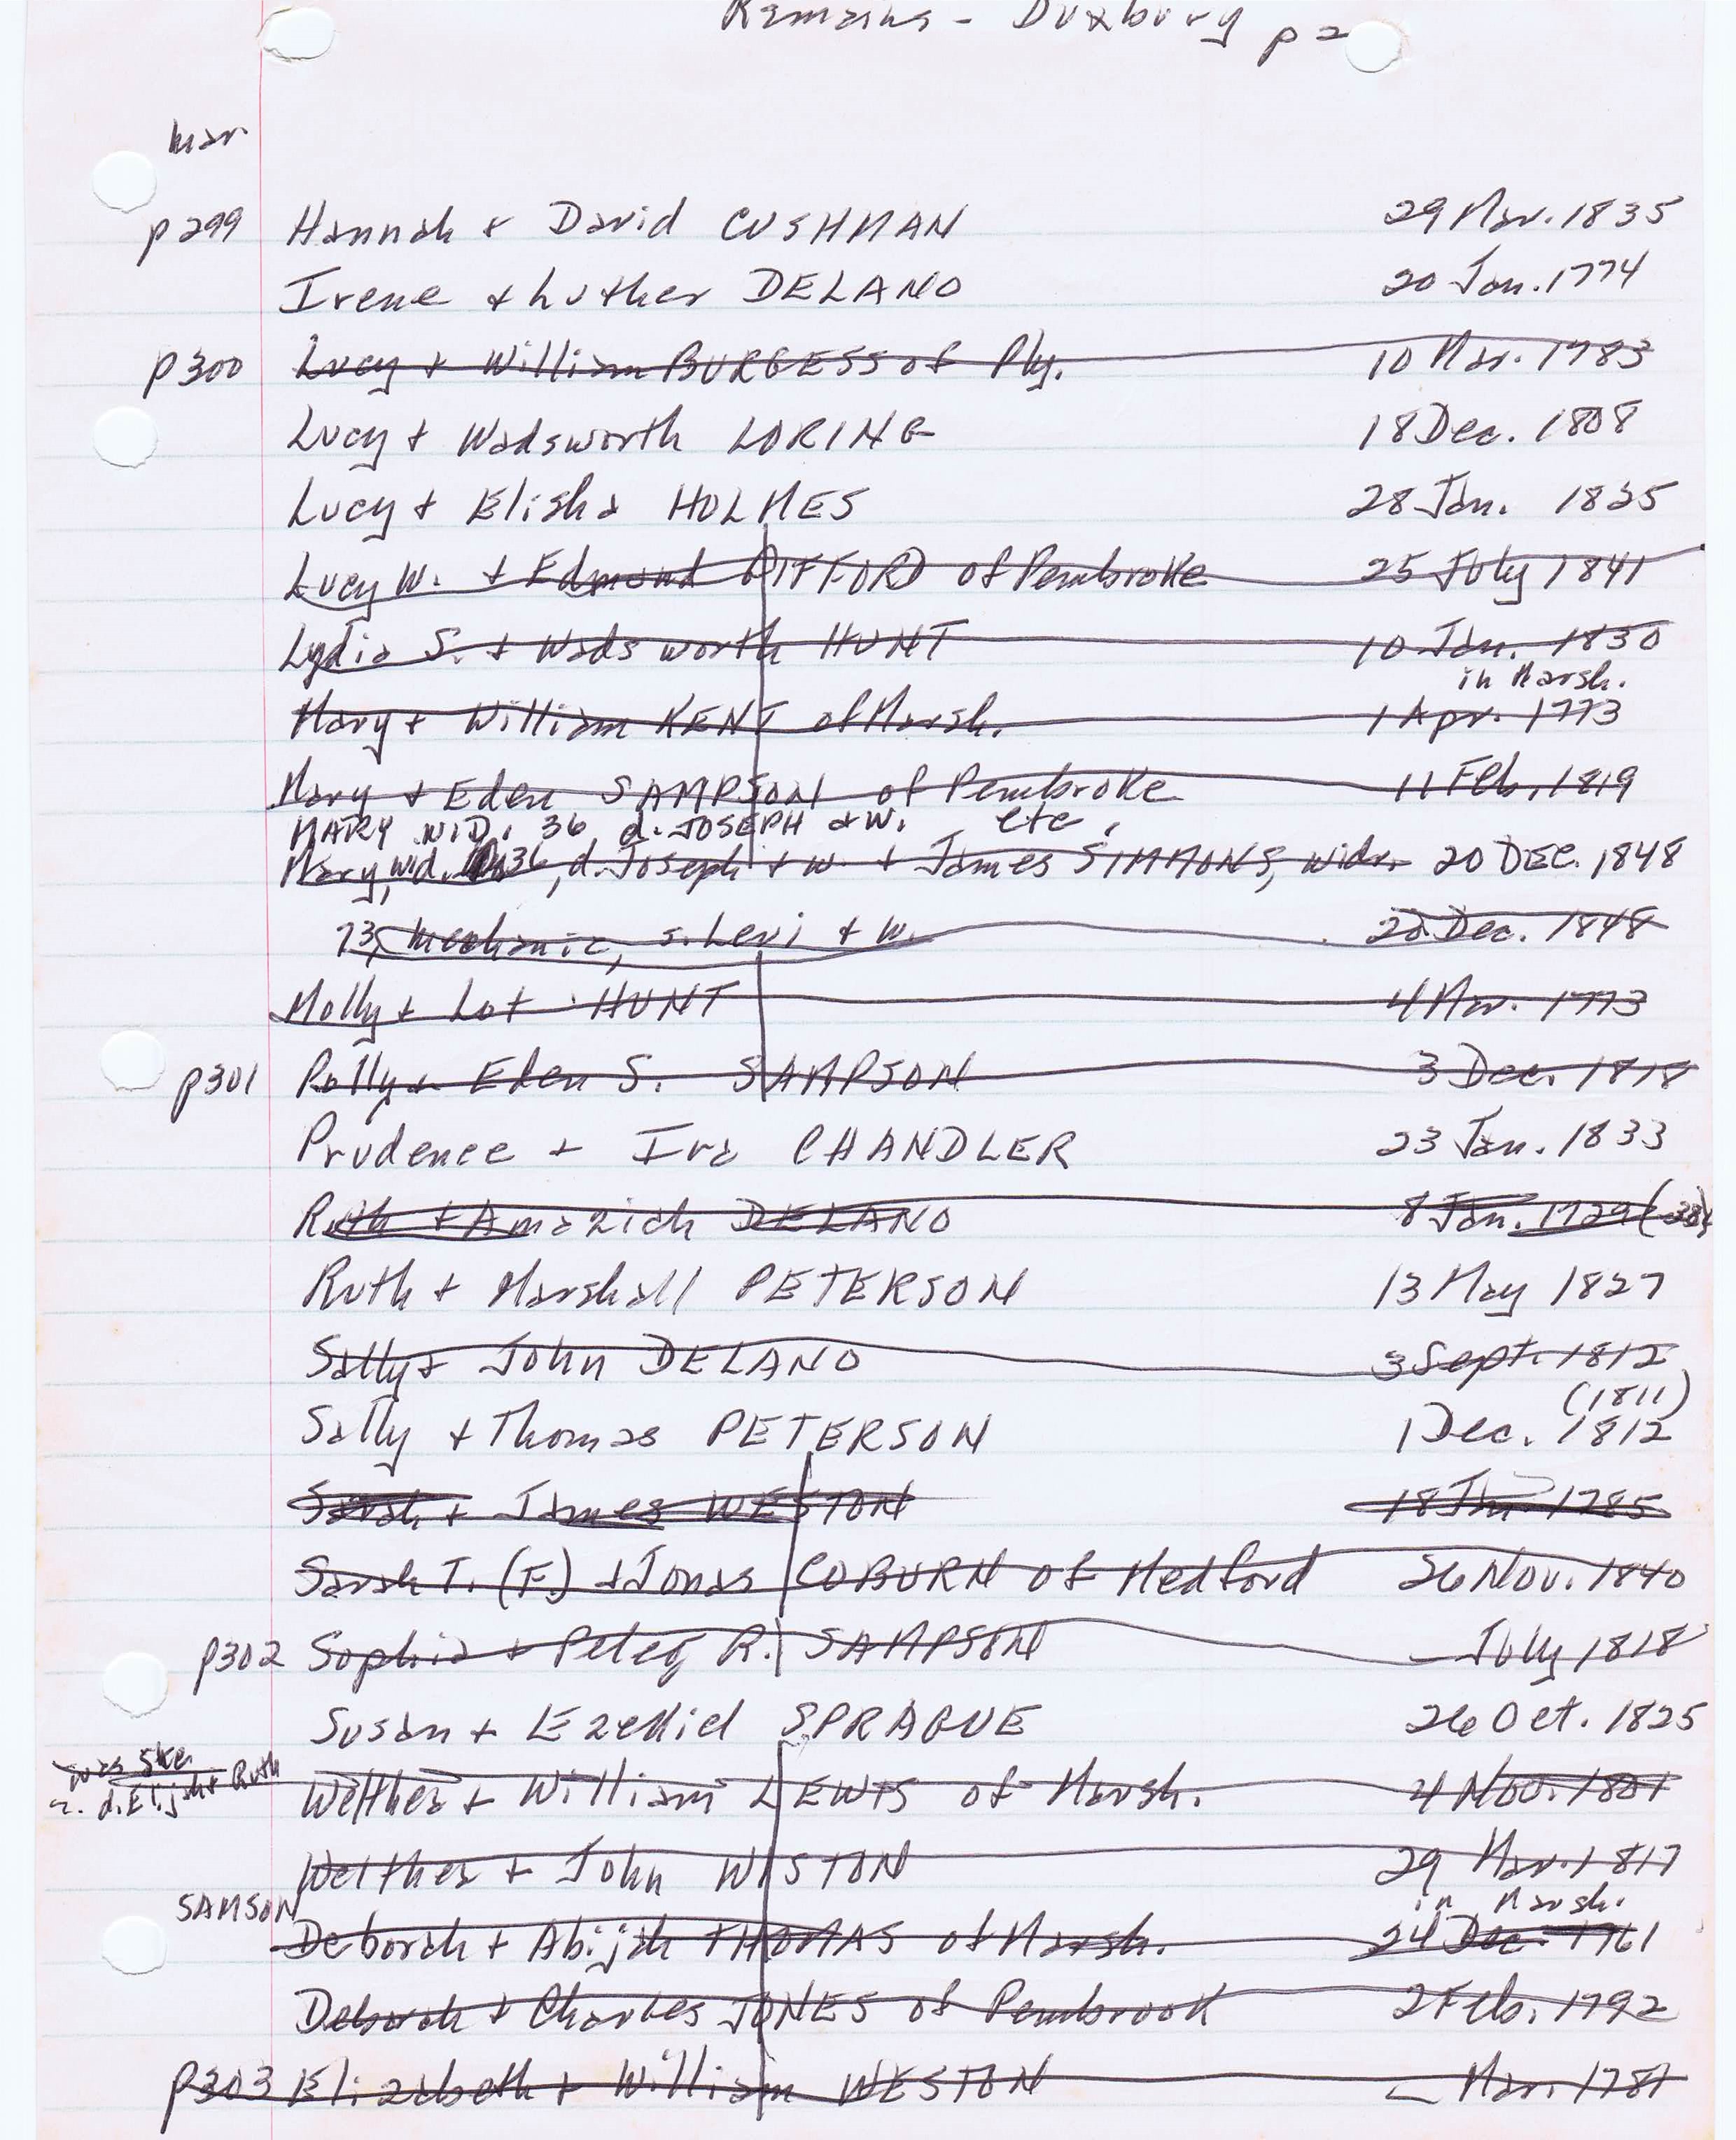 Remains - Duxbury p 2
mar.
p299 Hannah + David CUSHMAN 29 Mar. 1835
Irene + Luther DELANO 20 Jan. 1774
p300 Lucy + William BURGESS of Ply. 10 Mar. 1783
Lucy + Wadsworth LORING 18 Dec. 1808
Lucy + Elisha HOLMES 28 Jan. 1835
Lucy W. + Edmund GIFFORD of Pembroke 25 July 1841
Lydia S. + Wadsworth HUNT 10 Jan. 1830
in Marsh.
Mary + William KENT of Marsh. 1 Apr. 1773
Mary + Eden SAMPSON of Pembroke 11 Feb. 1819
MARY WID. 36 d. JOSEPH + W. etc.
Mary, wid. 36, d. Joseph + w. + James SIMMONS, widr. 20 DEC. 1848
73, mechanic, s. Levi + w. 20 Dec. 1848
Molly + Lot HUNT 4 Mar. 1773
p301 Polly + Eden S. SAMPSON 3 Dec. 1818
Prudence + Ira CHANDLER 23 Jan. 1833
Ruth + Amaziah DELANO 8 Jan. 1729
Ruth + Marshall PETERSON 13 May 1827
Sally + John DELANO 3 Sept. 1812
(1811)
Sally + Thomas PETERSON 1 Dec. 1812
Sarah + James WESTON 18 Jan. 1785
Sarah T. (F.) + Jonas COBURN of Medford 26 Nov. 1840
p302 Sophia + Peleg R. SAMPSON – July 1818
Susan + Ezekiel SPRAGUE 26 Oct. 1825
was
d. Elijah + Ruth
Welthea + William LEWIS of Marsh. 4 Nov. 1801
Welthea + John WESTON 29 Mar. 1817
SAMSON in Marsh.
Deborah + Abijah THOMAS of Marsh. 24 Dec. 1761
Deborah + Charles JONES of Pembrook 2 Feb. 1792
p303 Elizabeth + William WESTON – Mar. 1781